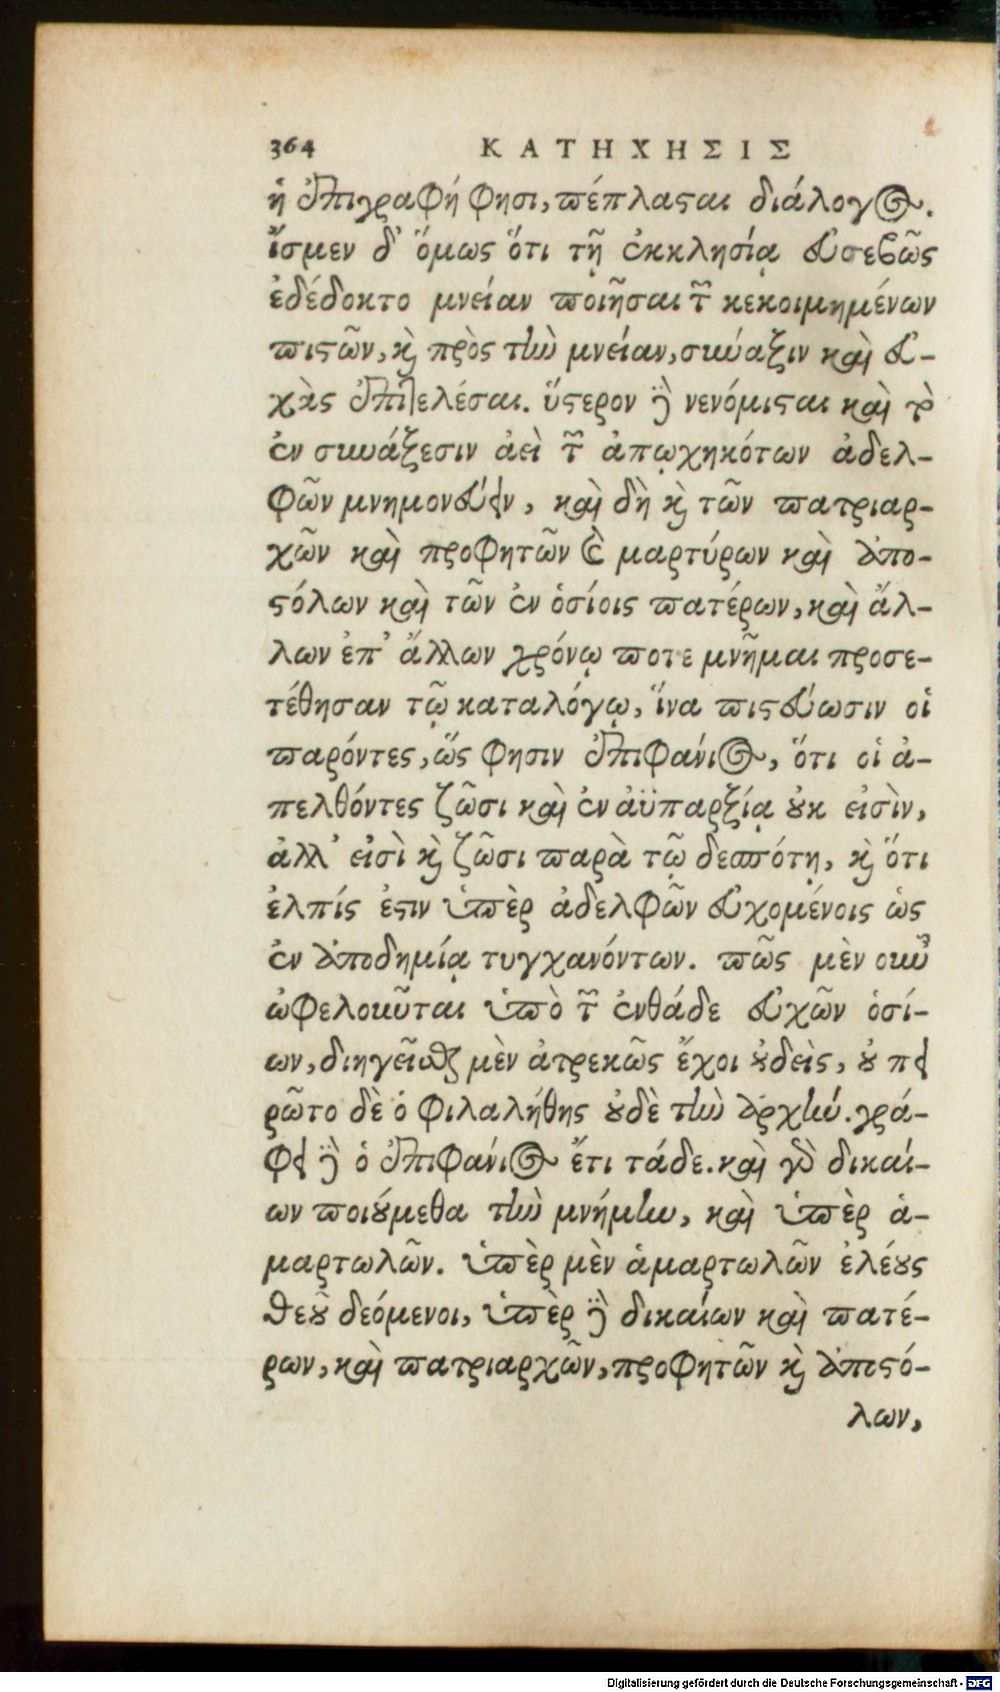 364 ΚΑΤΗΧΗΣΙΣ
ἡ ἐπιγραφή φησι, πέπλασαι διάλογος.
ἴσμεν δ' ὅμως ὅτι τῇ ἐκκλησίᾳ εὐσεβῶς
ἐδέδοκτο μνείαν ποιῆσαι τῶν κεκοιμημένων
πιστῶν, καὶ πρὸς τὴν μνείαν, σύναξιν καὶ εὐ-
χὰς ἐπιτελέσαι. ὕστερον δὲ νενόμισται καὶ τὸ
ἐν συνάξεσιν ἀεὶ τῶν ἀπῳχηκότων ἀδελ-
φῶν μνημονεύειν, καὶ δὴ καὶ τῶν πατριαρ-
χῶν καὶ προφητῶν καὶ μαρτύρων καὶ ἀπο-
στόλων καὶ τῶν ἐν ὁσίοις πατέρων, καὶ ἄλ-
λων ἐπ' ἄλλων χρόνῳ ποτε μνῆμαι προσε-
τέθησαν τῷ καταλόγῳ, ἵνα πιστεύωσιν οἱ
παρόντες, ὥς φησιν Ἐπιφάνιος, ὅτι οἱ ἀ-
πελθόντες ζῶσι καὶ ἐν ἀϋπαρξίᾳ οὐκ εἰσὶν,
ἀλλ' εἰσὶ καὶ ζῶσι παρὰ τῷ δεσπότῃ, καὶ ὅτι
ἐλπίς ἐστιν ὑπὲρ ἀδελφῶν εὐχομένοις ὡς
ἐν ἀποδημίᾳ τυγχανόντων. πῶς μὲν οὖν
ὠφελοῦνται ὑπὸ τῶν ἐνθάδε εὐχῶν ὁσί-
ων, διηγεῖσθαι μὲν ἀτρεκῶς ἔχοι οὐδεὶς, οὐ πει
ρῷτο δὲ ὁ φιλαλήθης οὐδὲ τὴν ἀρχήν. γρά-
φει δὲ ὁ Ἐπιφάνιος ἔτι τάδε. καὶ γὰρ δικαί-
ων ποιούμεθα τὴν μνήμην, καὶ ὑπὲρ ἁ-
μαρτωλῶν. ὑπὲρ μὲν ἁμαρτωλῶν ἐλέους
θεοῦ δεόμενοι, ὑπὲρ δὲ δικαίων καὶ πατέ-
ρων, καὶ πατριαρχῶν, προφητῶν καὶ ἀποστό-
λων,
Digitalisierung gefördert durch die Deutsche Forschungsgemeinschaft - DFG